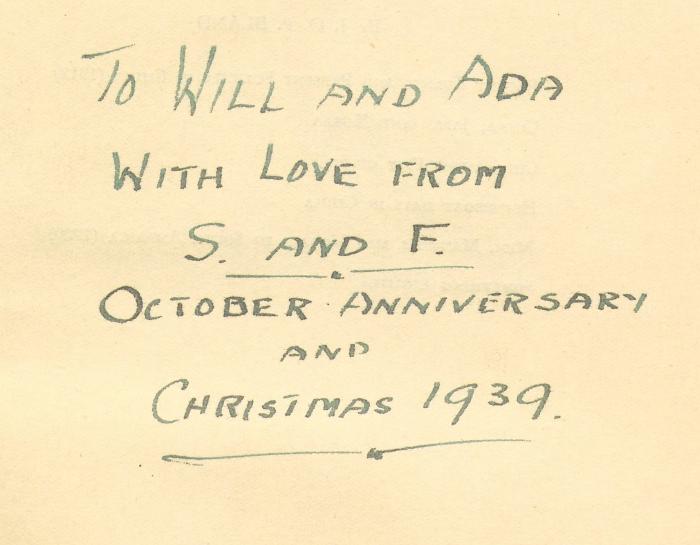 To Will and Ada
With Love from
S. and F.
October Anniversary
and
Christmas 1939.